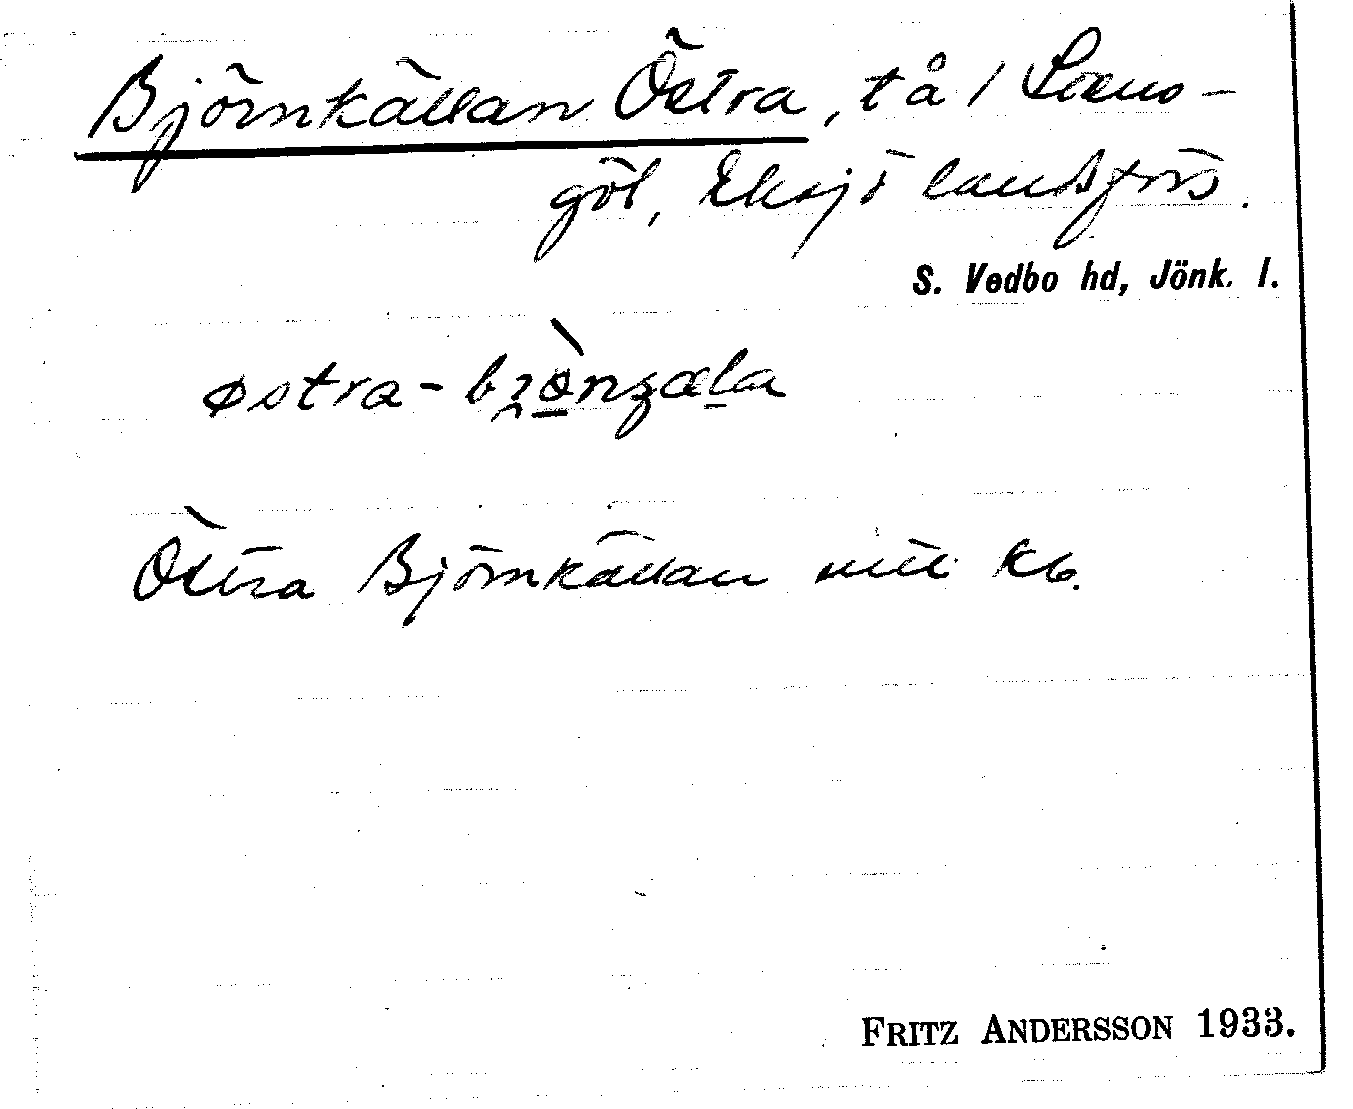 Björnkällan Östra, tå / Soens-
göl, Eksjö landsförs.
S. Vedbo hd, Jönk. l.
Östra Björnkällan enl. kb.
FRITZ ANDERSSON 1933.